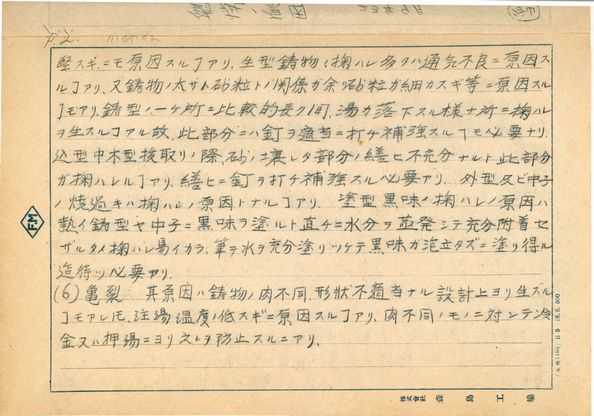 堅スギニモ原因スルコアリ、生型鋳物ノ掬ハレ多クハ通気不良ニ原因ス
ルコアリ、又鋳物ノ太サト砂粒トノ関係ガ余リ砂粒ガ細カスギ等ニ原因スル
コモアリ、鋳型ノ一ケ所ニ比較的長ク同湯ガ落下スル様ナ所ニ掬ハレ
ヲ生スルコアル故、此部分ニハ釘ヲ適当ニ打チ補強スルコモ必要ナリ、
込型中木型抜取リノ際、砂ノ壊レタ部分ノ繕ヒ不充分ナルト此部分
ガ掬ハレルコアリ、繕ヒニ釘ヲ打チ補強スル必要アリ、外型及ビ中子
ノ焼過キハ掬ハレノ原因トナルコアリ、塗型黒味ノ掬ハレノ原因ハ
熱イ鋳型ヤ中子ニ黒味ヲ塗ルト直チニ水分ヲ蒸発シテ充分附着セ
ザルタメ掬ハレ易イカラ、筆デ水ヲ充分塗リツケテ黒味ガ泡立タズニ塗リ得ル
迄待ツ必要アリ、
(6) 亀裂 其原因ハ鋳物ノ肉不同、形状不適当ナル設計上ヨリ生ズル
コモアレ共、注湯温度ノ低スギニ原因スルコアリ、肉不同ノモノニ対シテ冷
金又ハ押湯ニヨリ之レヲ防止スルニアリ、
FM
株式會社 森島工場